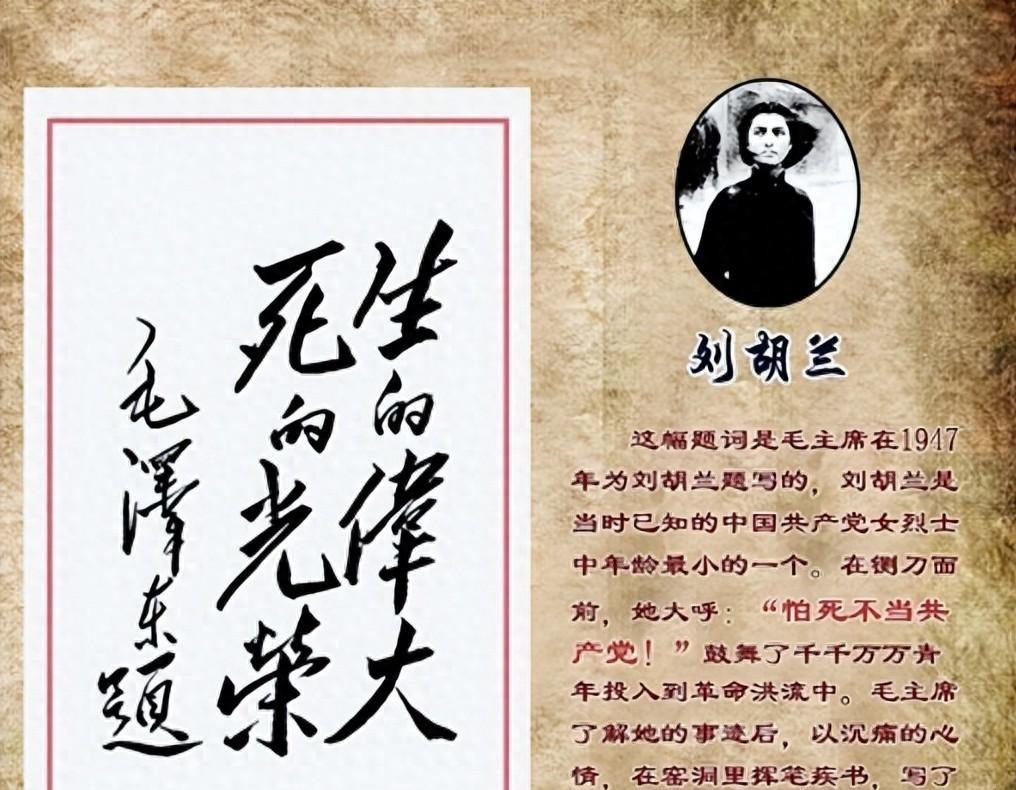 生的偉大
死的光榮
毛澤东題
刘胡兰
这幅题词是毛主席在1947
年为刘胡兰题写的，刘胡兰是
当时已知的中国共产党女烈士
中年龄最小的一个。在铡刀面
前，她大呼：“怕死不当共
产党！”鼓舞了千千万万青
年投入到革命洪流中。毛主席
了解她的事迹后，以沉痛的心
情，在窑洞里挥笔疾书，写了